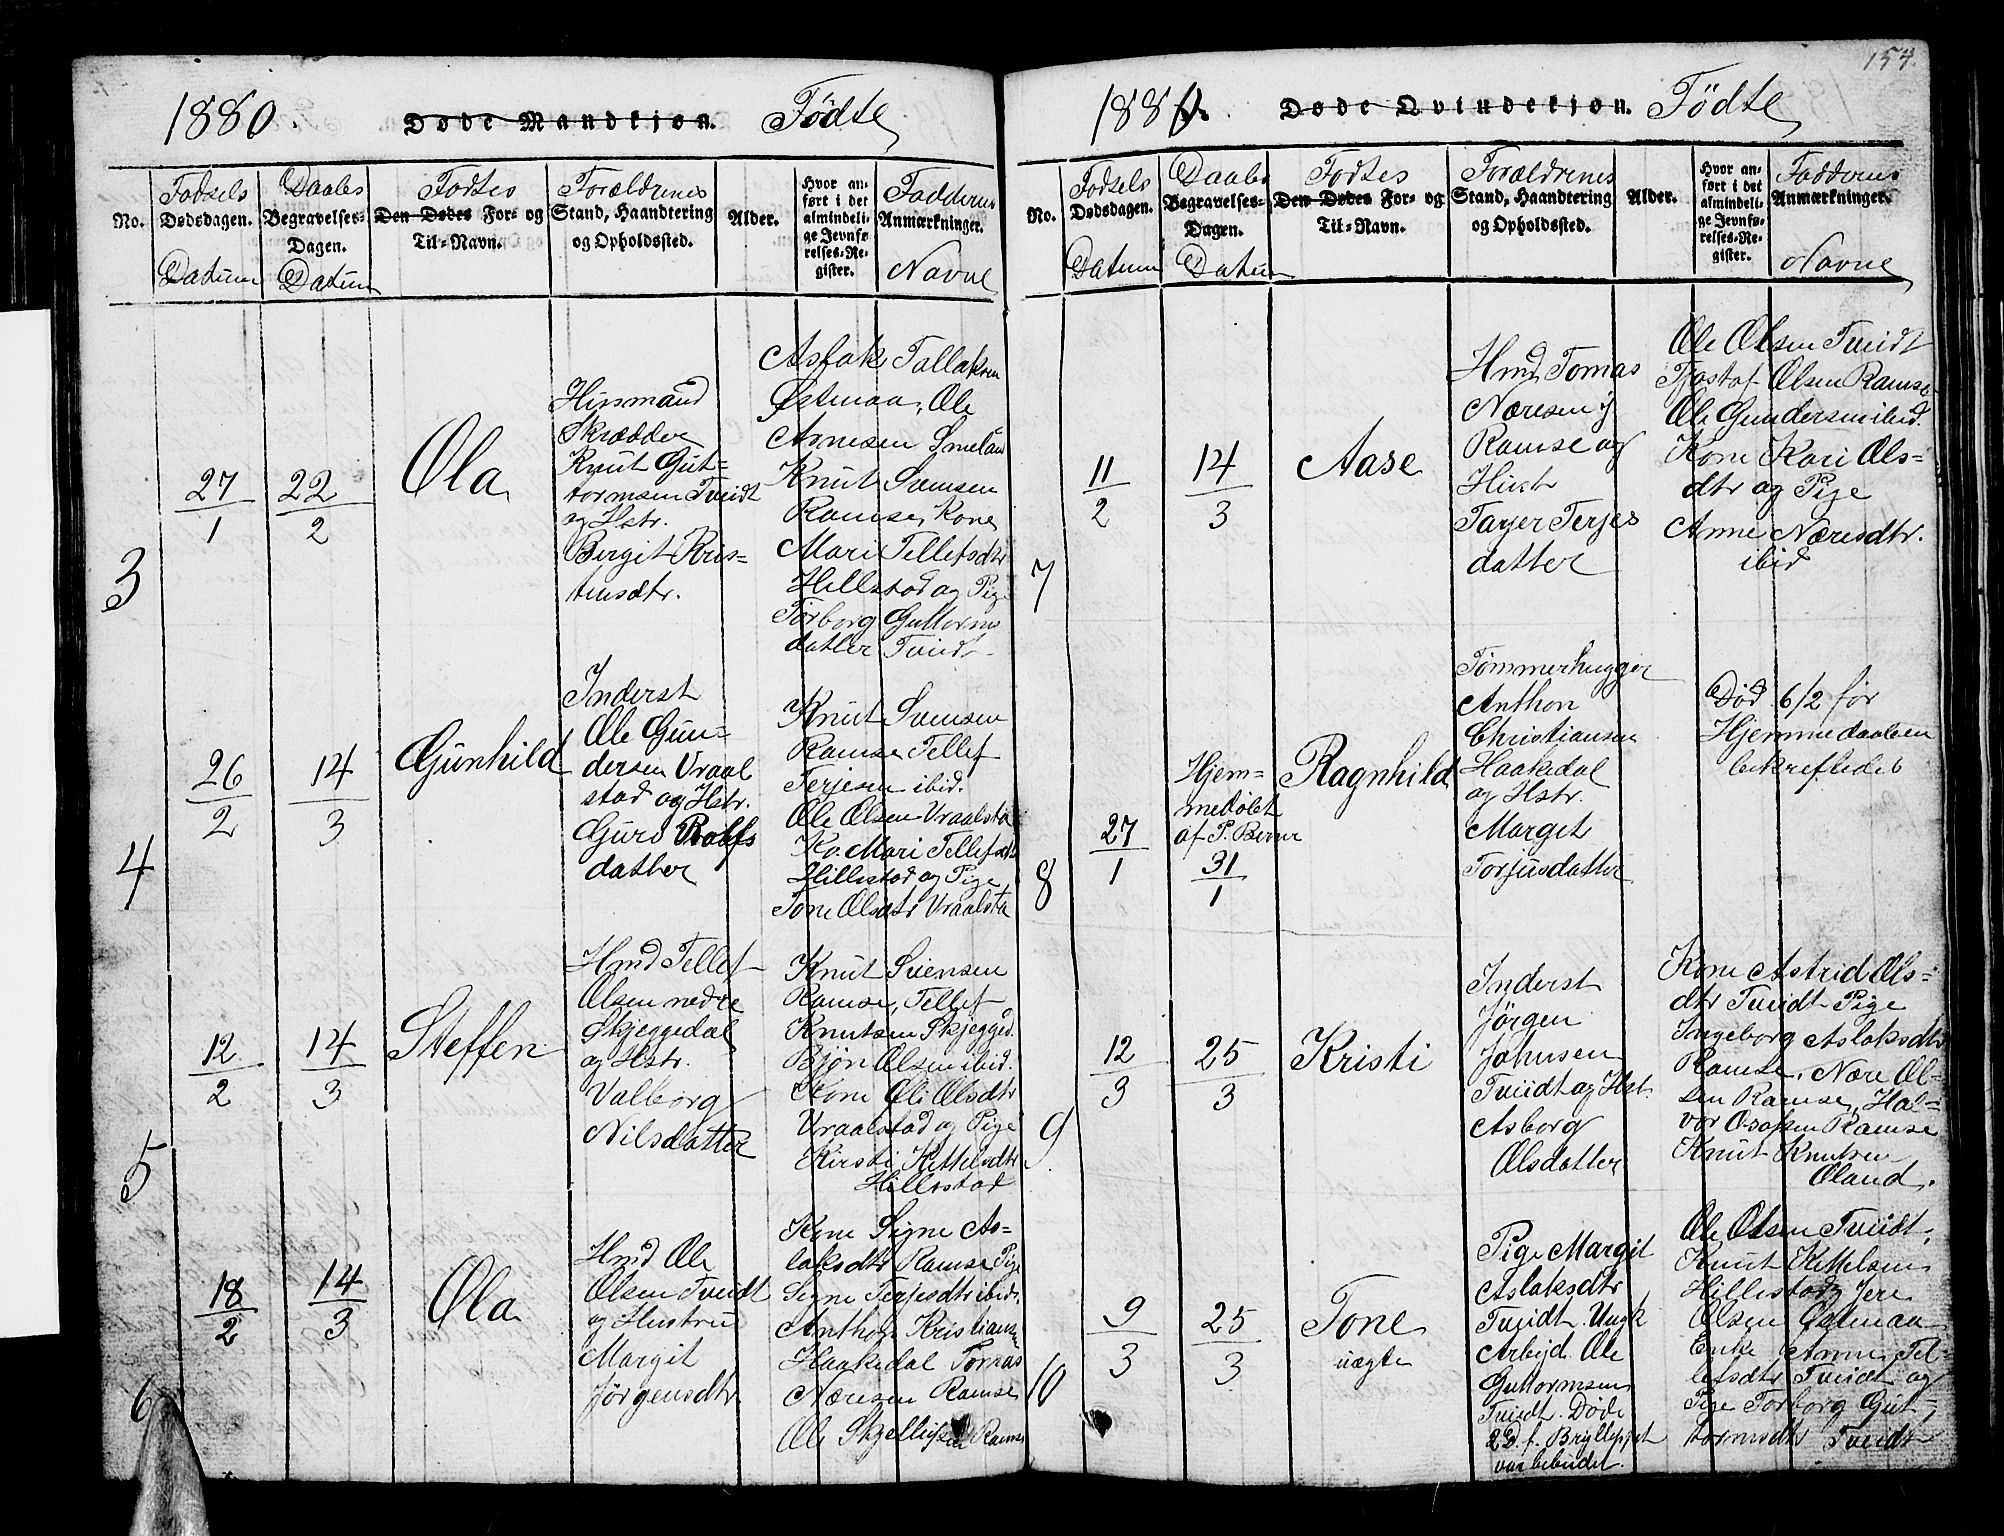 154.
1880. Døde Mandkjøn. Födte
No.
Fødsels
Dødsdagen.
Datum
Daabs
Begravelses-
Dagen.
Datum
Fødtes
Den Dødes For- og
Til-Navn.
Forældrenes
Stand, Haandtering
og Opholdssted.
Alder.
Hvor an-
ført i det
almindeli-
ge Jevnfø-
relses-Re-
gister.
Faddernes
Anmærkninger.
Navne
3
27/1
22/2
Ola
Husmand
Skrædder
Knut Gut-
tormsen Tveidt
og Hstr.
Birgit Kris-
tensdtr.
Aslak Tallaksen
Østmaa, Ole
Arnesen Smeland
Knut Svensen
Ramse, Kone
Mari Tellefsdtr
Hillestad og Pige
Torborg Guttorms
datter Tveidt
4
26/2
14/3
Gunhild
Inderst
Ole Gun-
dersen Vraal
stad og Hstr.
Guro Rolfs
datter
Knut Svensen
Ramse Tellef
Terjesen ibid.
Ole Olsen Vraalsta
Ko. Mari Tellefsdtr
Hillestad og Pige
Tone Olsdtr Vraalsta
5
12/2
14/3
Steffen
Hmd Tellef
Olsen nedre
Skjeggedal
og Hstr.
Valborg
Nilsdatter
Knut Svensen
Ramse, Tellef
Knutsen Skjegged.
Bjøn Olsen ibid.
Kone Oli Olsdtr
Vraalstad og Pige
Kirsti Kittelsdtr
Hillestad
6
18/2
14/3
Ola
Hmd Ole
Olsen Tveidt
og Hustru
Margit
Jørgensdtr
Kone Signe As-
laksdtr Ramse Pige
Signe Terjesdtr ibid.
Anthon Kristiansen
Haakedal Tomas
Næresen Ramse
Ole Ramse
1880. Døde Qvindekjøn. Födte
No.
Fødsels
Dødsdagen.
Datum
Daabs
Begravelses-
Dagen.
Datum
Fødtes
Den Dødes For- og
Til-Navn.
Forældrenes
Stand, Haandtering
og Opholdssted.
Alder.
Hvor an-
ført i det
almindeli-
ge Jevnfø-
relses-Re-
gister.
Faddernes
Anmærkninger.
Navne
7
11/2
14/3
Aase
Hmd Tomas
Næresen y
Ramse og
Hust
Tarjer Terjes
datter
Ole Olsen Tveidt
Tjostaf Olsen Ramse
Ole Gundersen ibid.
Kone Kari Ols-
dtr og Pige
Anne Næresdtr.
ibid
8
27/1
Hjem-
medøbt
af P. Berner
31/1
Ragnhild
Tømmerhugger
Anthon
Christiansen
Haakedal
og Hstr.
Margit
Torjusdatter
Død 6/2 før
Hjemmedaaben
bekreftedes
9
12/3
25/3
Kristi
Inderst
Jørgen
Johnsen
Tveidt og Hst.
Asborg
Olsdatter
Kone Astrid Ols-
dtr Tveidt Pige
Ingeborg Aslaksdtr
Ramse, Nære Ol-
sen Ramse, Hal-
vor Osofsen Ramse
Knut Knutsen
Øland.
10
9/3
25/3
Tone
uægte
Pige Margit
Aslaksdtr
Tveidt. Ungk
Arbejd. Ole
Guttormsen
Tveidt. Døde
2 D. f. Brylluppet
var bebudet.
Ole Olsen Tveidt,
Knut Kittelsen
Hillestad, Jere
Olsen Østmaa
Enke Anne Tel-
lefsdtr Tveidt og
Pige Torborg Gut-
tormsdtr Tveidt